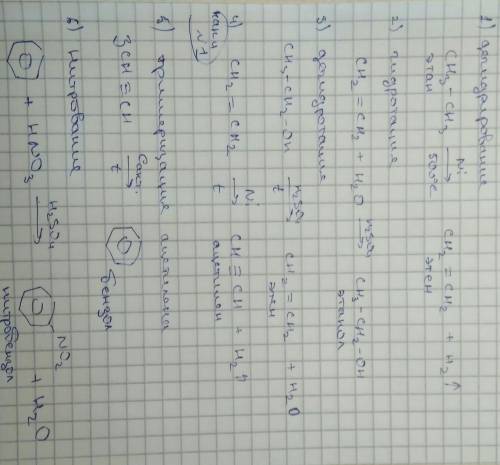 1) дегидрирование
CH3 – CH3 Ni → 500°C CH2 = CH2 + H2↑
этан этен
2) гидратация
CH2 = CH2 + H2O H2SO4 → CH3 – CH2 – OH
этанол
3) дегидратация
CH3 – CH2 – OH H2SO4 → t CH2 = CH2 + H2O
этен
4) CH2 = CH2 Ni → t CH ≡ CH + H2↑
ацетилен
как и №1
5) тримеризация ацетилена
3CH ≡ CH Cакт. → t
бензол
6) нитрование
+ HNO3 H2SO4 → NO2 + H2O
нитробензол